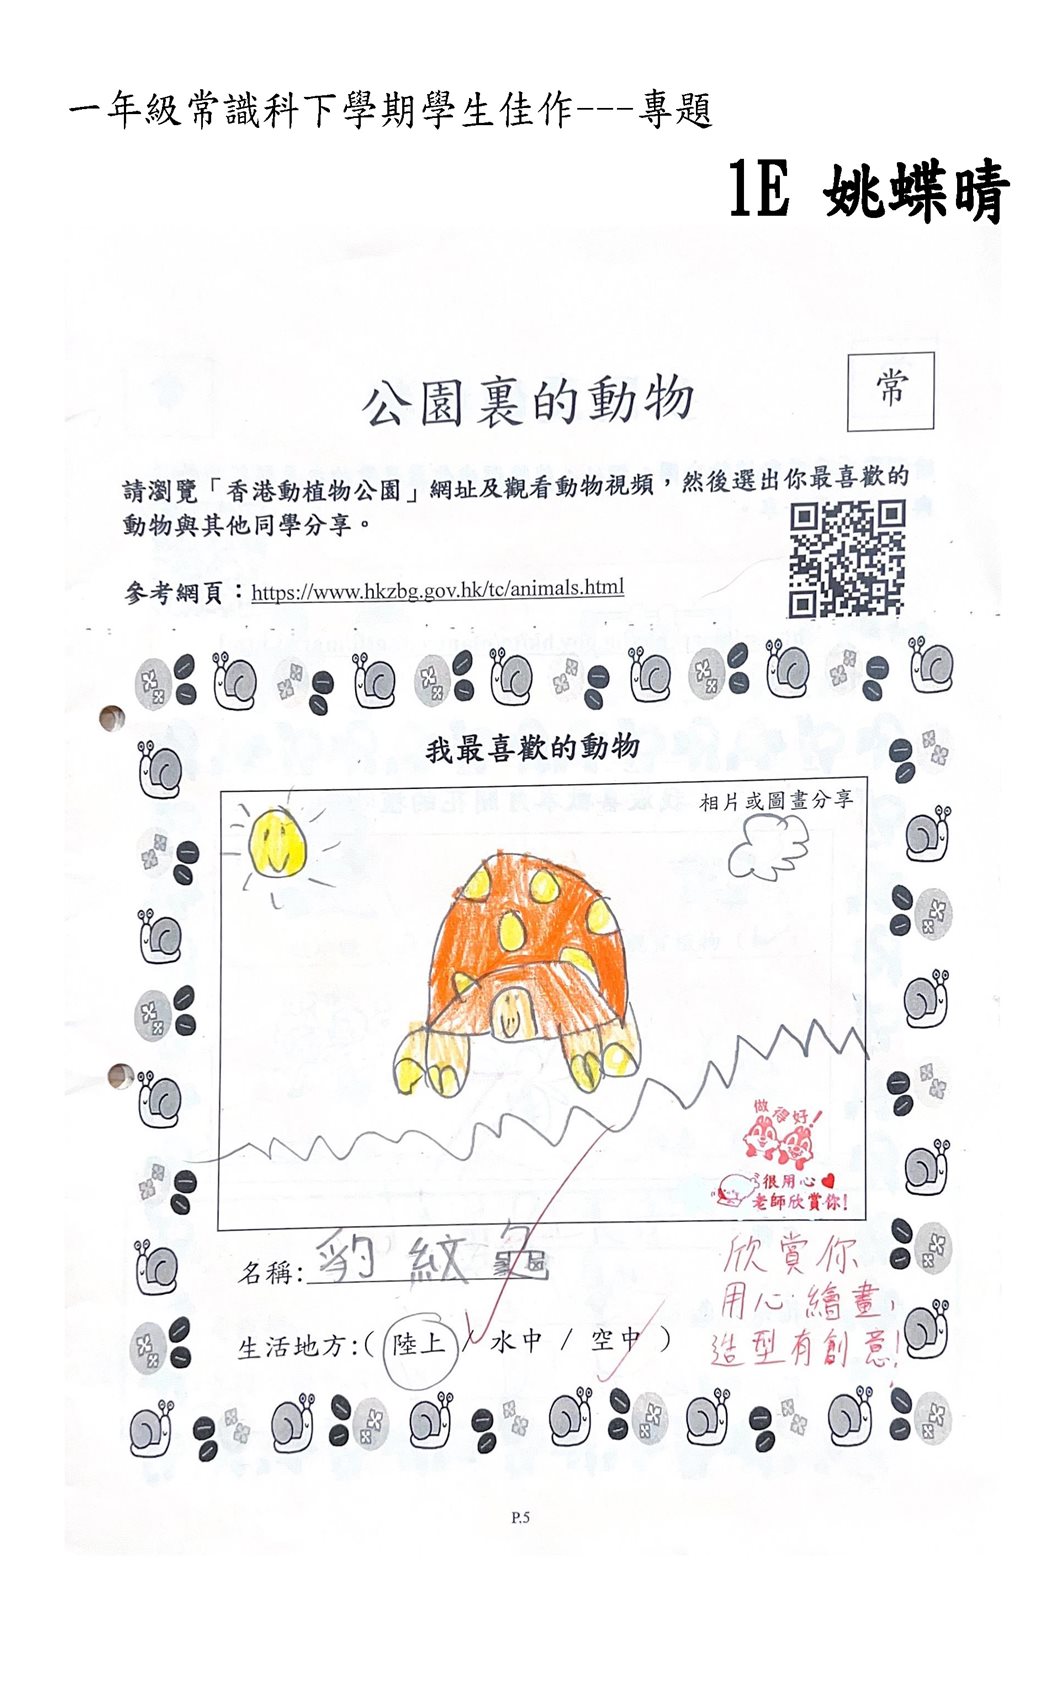 一年級常識科下學期學生佳作---專題
1E 姚蝶晴
公園裏的動物
常
請瀏覽「香港動植物公園」網址及觀看動物視頻，然後選出你最喜歡的
動物與其他同學分享。
參考網頁：https://www.hkzbg.gov.hk/tc/animals.html
我最喜歡的動物
相片或圖畫分享
做得好！
很用心
老師欣賞你！
名稱：豹紋龜
生活地方：( 陸上 / 水中 / 空中 )
欣賞你
用心繪畫，
造型有創意！
P.5